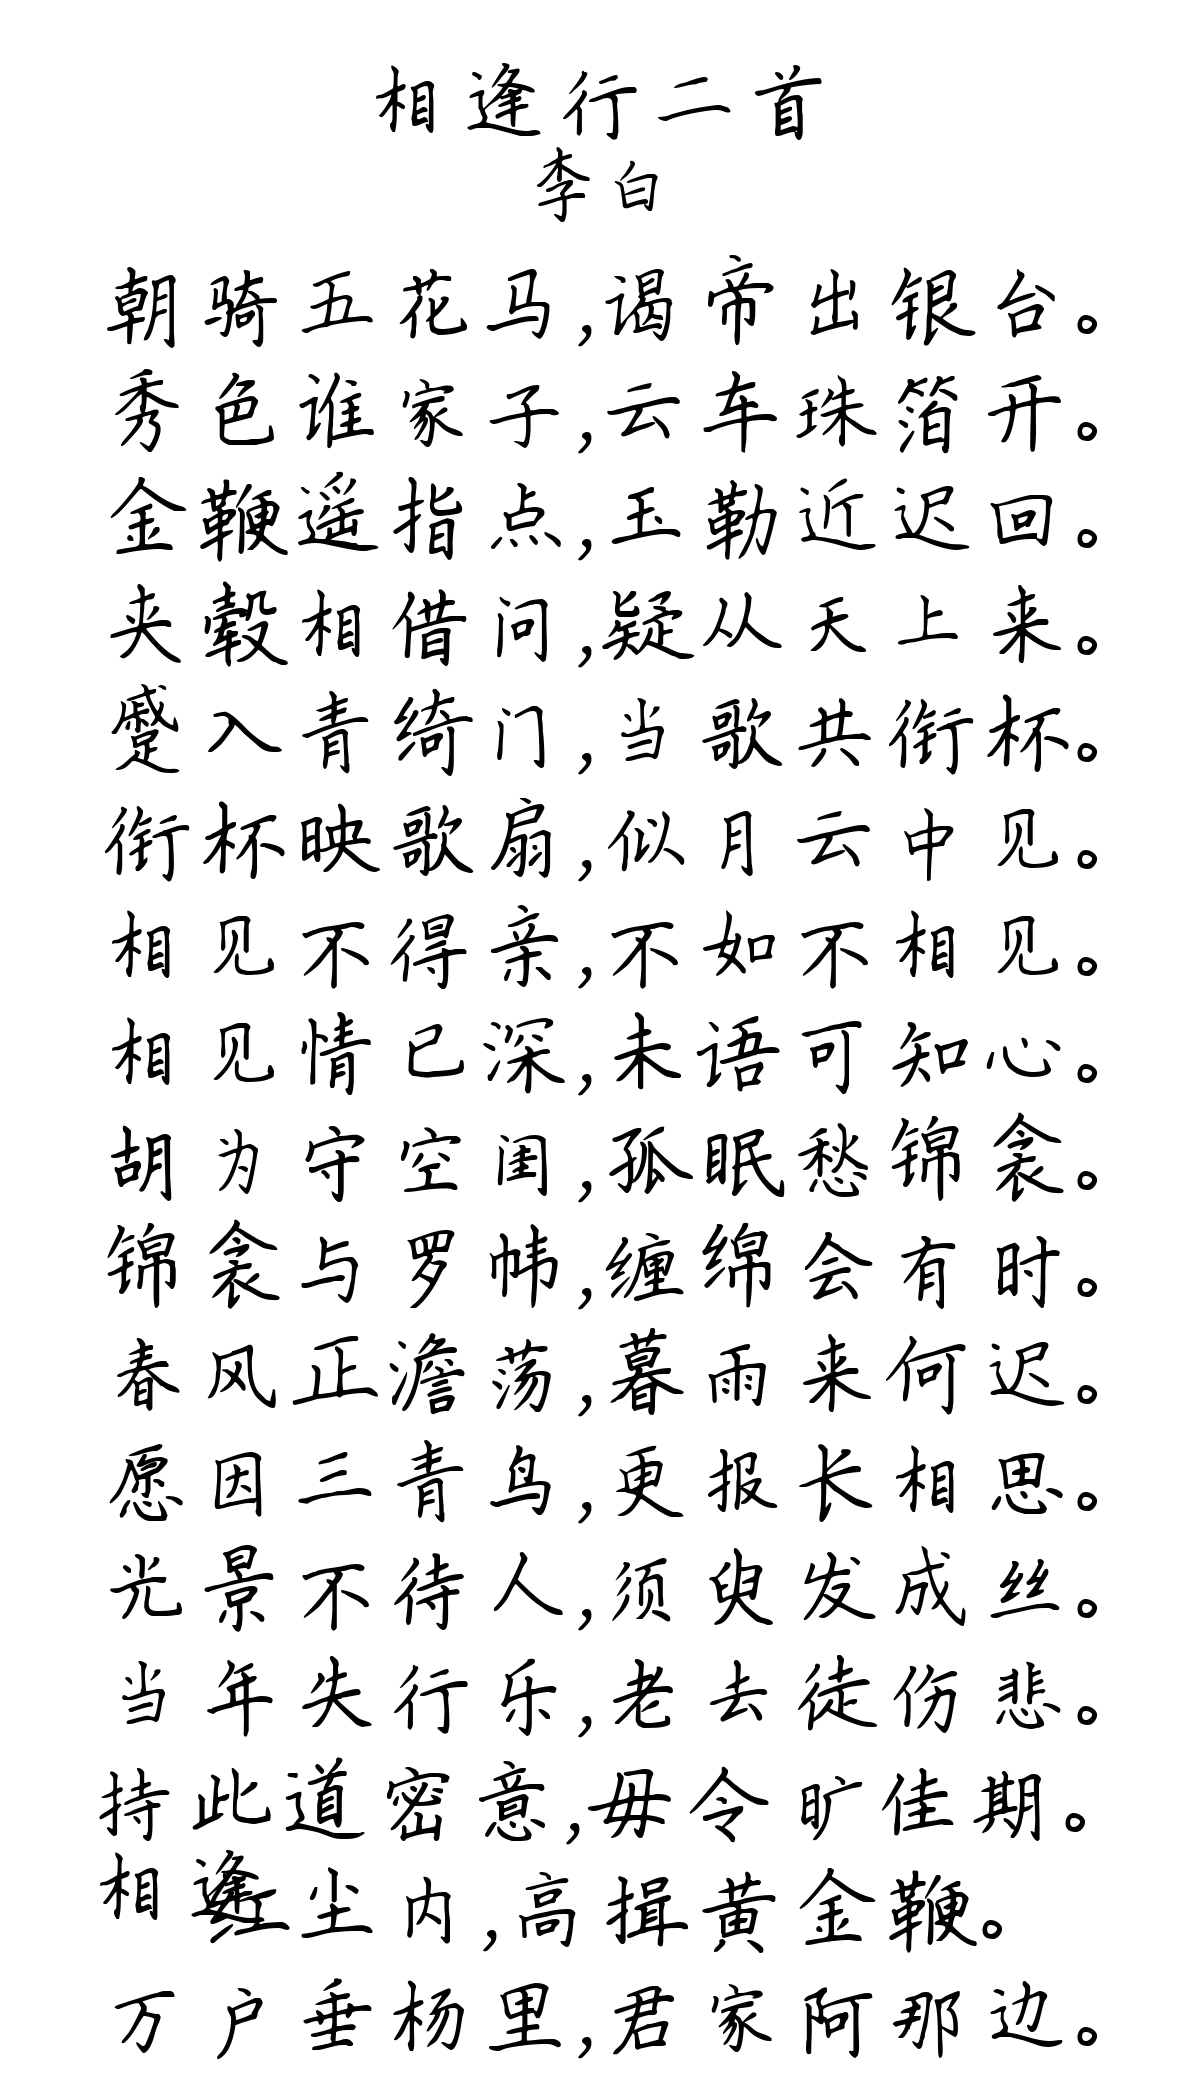 相逢行二首
李白
朝骑五花马,谒帝出银台。
秀色谁家子,云车珠箔开。
金鞭遥指点,玉勒近迟回。
夹毂相借问,疑从天上来。
蹙入青绮门,当歌共衔杯。
衔杯映歌扇,似月云中见。
相见不得亲,不如不相见。
相见情已深,未语可知心。
胡为守空闺,孤眠愁锦衾。
锦衾与罗帏,缠绵会有时。
春风正澹荡,暮雨来何迟。
愿因三青鸟,更报长相思。
光景不待人,须臾发成丝。
当年失行乐,老去徒伤悲。
持此道密意,毋令旷佳期。
相逢红尘内,高揖黄金鞭。
万户垂杨里,君家阿那边。